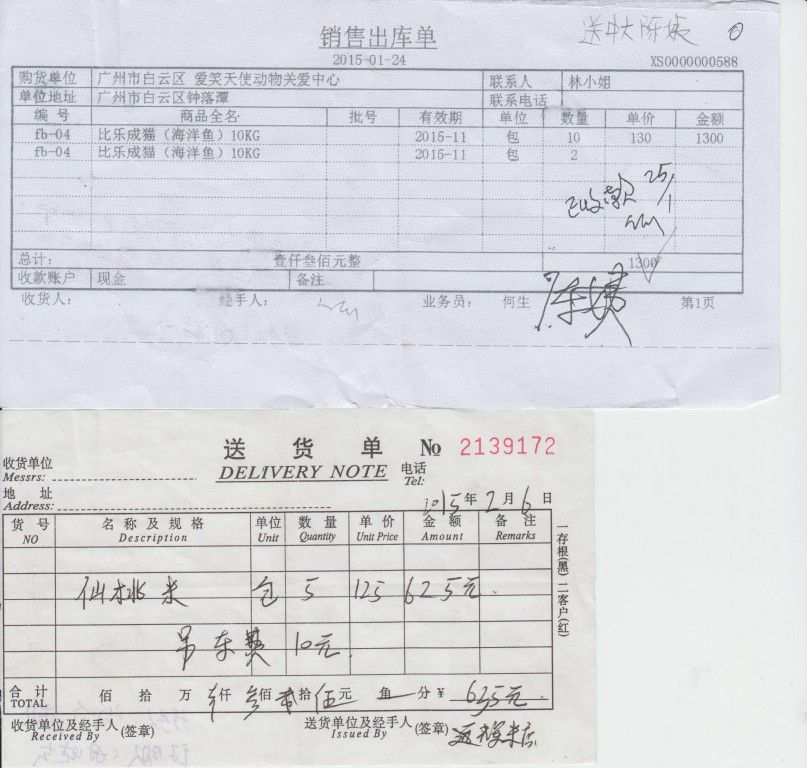 销售出库单
送牛大陈姨
2015-01-24
XS0000000588
购货单位 广州市白云区 爱笑天使动物关爱中心 联系人 林小姐
单位地址 广州市白云区钟落潭 联系电话
编 号 商品全名 批号 有效期 单位 数量 单价 金额
fb-04 比乐成猫（海洋鱼）10KG 2015-11 包 10 130 1300
fb-04 比乐成猫（海洋鱼）10KG 2015-11 包 2
已收款 25/1
总计： 壹仟叁佰元整 1300
收款账户 现金 备注
收货人： 经手人： 业务员： 何生 陈姨 第1页
送 货 单 № 2139172
DELIVERY NOTE
收货单位
Messrs:
电话
Tel:
地 址
Address:
2015年2月6日
货 号 名 称 及 规 格 单位 数 量 单 价 金 额 备 注
NO Description Unit Quantity Unit Price Amount Remarks
仙桃米 包 5 125 625元.
吊车费 10元.
合 计 佰 拾 万 仟 佰 拾 伍元 角 分 ¥ 635元.
TOTAL
收货单位及经手人 (签章) 送货单位及经手人 (签章)
Received By Issued By
一存根(黑) 二客户(红)